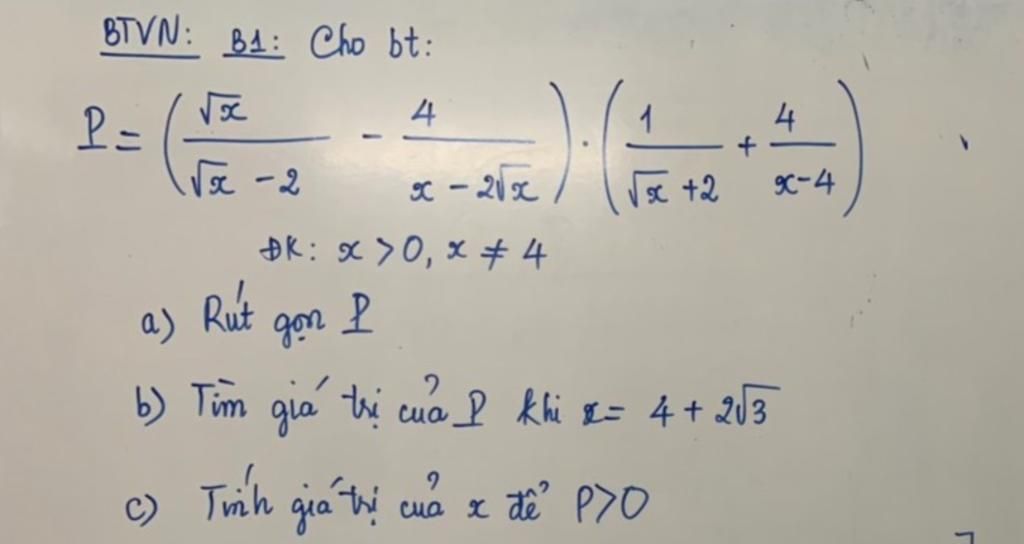 BTVN: B1: Cho bt:
P = (√x / (√x - 2) - 4 / (x - 2√x)) · (1 / (√x + 2) + 4 / (x - 4))
ĐK: x > 0, x ≠ 4
a) Rút gọn P
b) Tìm giá trị của P khi x = 4 + 2√3
c) Tính giá trị của x để P > 0